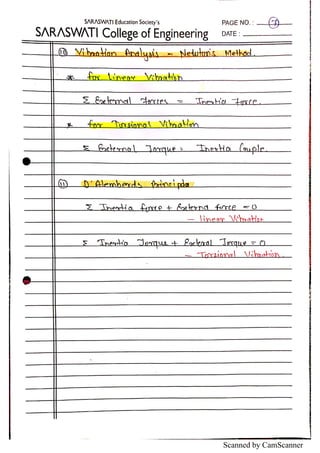 SARASWATI Education Society's
PAGE NO. : 7
SARASWATI College of Engineering
DATE :
10 Vibration Analysis - Netuton's Method.
* for Linear Vibration
Σ External forces = Inertia force.
* for Torsional Vibration
Σ External Torque = Inertia Couple.
11 D'Alemberds Principle
Σ Inertia force + External force = 0
- linear Vibration
Σ Inertia Torque + External Torque = 0
- Torsional Vibration.
Scanned by CamScanner